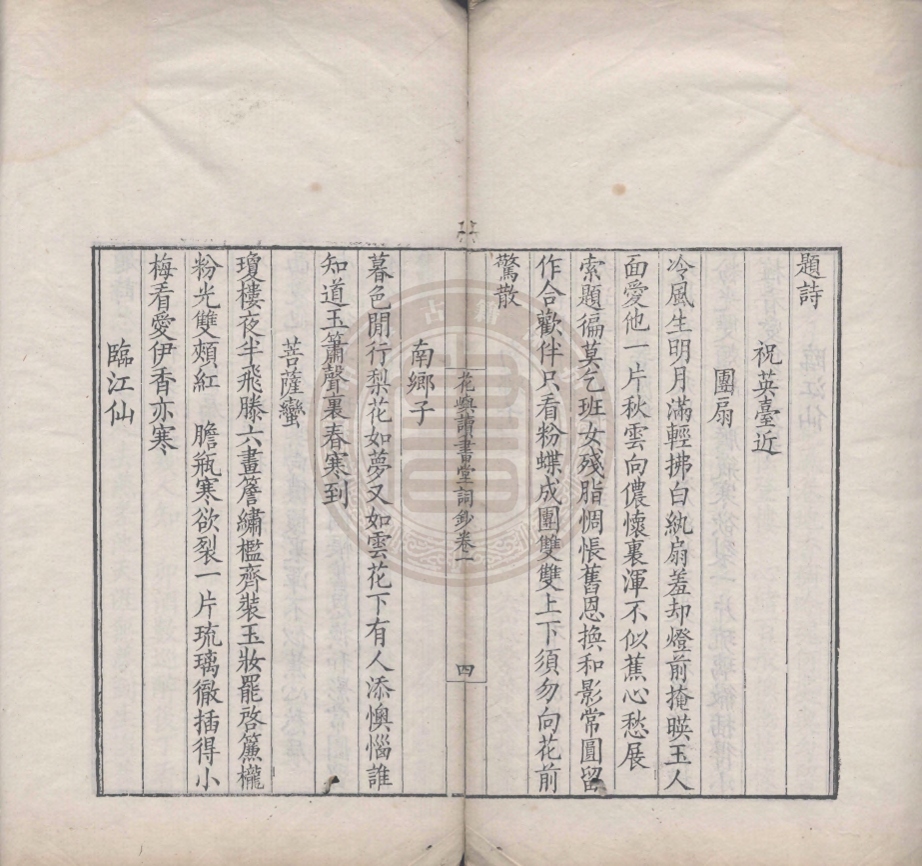 題詩
祝英臺近
團扇
冷風生明月滿輕拂白紈扇羞却燈前掩暎玉人
面愛他一片秋雲向儂懷裏渾不似蕉心愁展
索題徧莫乞班女殘脂惆悵舊恩換和影常圓留
作合歡伴只看粉蝶成團雙雙上下須勿向花前
驚散
花嶼讀書堂詞鈔卷一
四
南鄉子
暮色閒行梨花如夢又如雲花下有人添懊惱誰
知道玉簫聲裏春寒到
菩薩蠻
瓊樓夜半飛滕六畫簷繡檻齊裝玉妝罷啓簾櫳
粉光雙頰紅 膽瓶寒欲裂一片琉璃徹插得小
梅看愛伊香亦寒
臨江仙